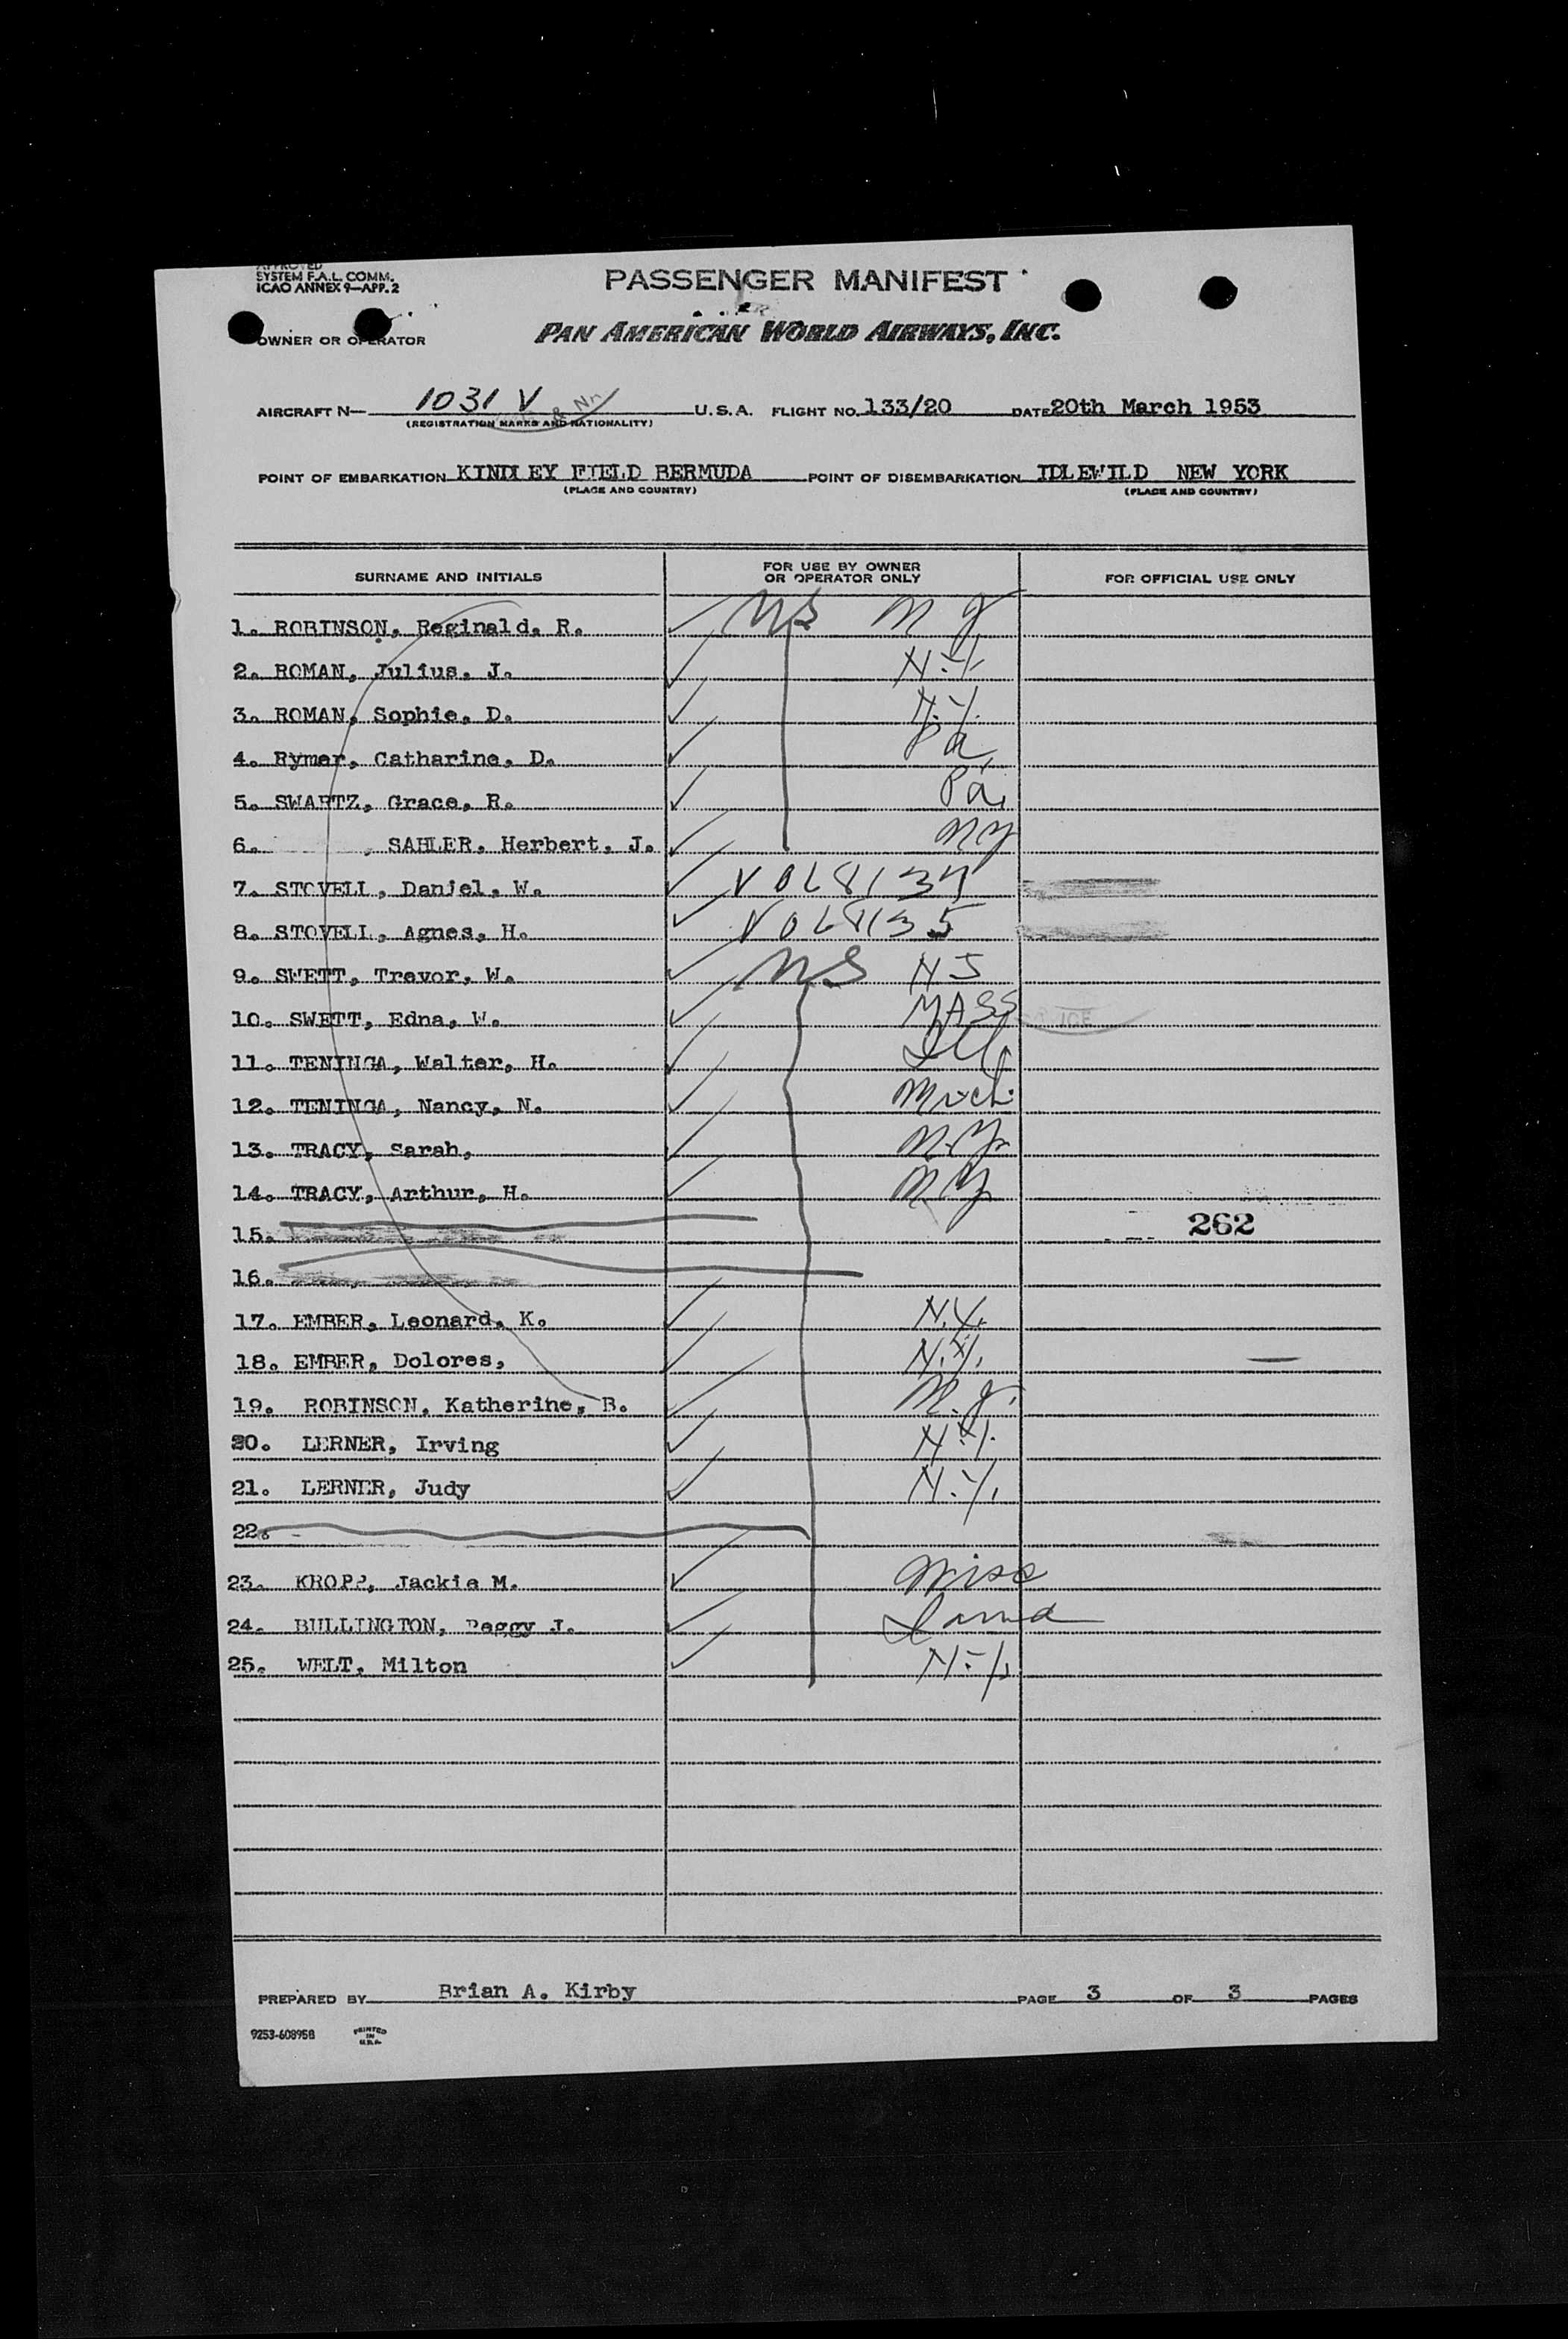 APPROVED
SYSTEM F.A.L. COMM.
ICAO ANNEX 9—APP. 2
PASSENGER MANIFEST
OWNER OR OPERATOR PAN AMERICAN WORLD AIRWAYS, INC.
AIRCRAFT N— 1031 V U.S.A. FLIGHT NO. 133/20 DATE 20th March 1953
(REGISTRATION MARKS AND NATIONALITY)
POINT OF EMBARKATION KINDLEY FIELD BERMUDA POINT OF DISEMBARKATION IDLEWILD NEW YORK
(PLACE AND COUNTRY) (PLACE AND COUNTRY)
SURNAME AND INITIALS FOR USE BY OWNER OR OPERATOR ONLY FOR OFFICIAL USE ONLY
1. ROBINSON, Reginald, R. US N J
2. ROMAN, Julius, J. N.Y.
3. ROMAN, Sophie, D. N.Y.
4. Rymer, Catharine, D. Pa.
5. SWARTZ, Grace, R. Pa.
6. , SAHLER, Herbert, J. NY
7. STOVELL, Daniel, W. V068134
8. STOVELL, Agnes, H. V068135
9. SWETT, Trevor, W. US NJ
10. SWETT, Edna, W. MASS
11. TENINGA, Walter, H. Ill.
12. TENINGA, Nancy, N. Mich.
13. TRACY, Sarah, N.Y.
14. TRACY, Arthur, H. NY
15. 262
16.
17. EMBER, Leonard, K. N.Y.
18. EMBER, Dolores, N.Y.
19. ROBINSON, Katherine, B. N.J.
20. LERNER, Irving N.Y.
21. LERNER, Judy N.Y.
22.
23. KROPP, Jackie M. Miss
24. BULLINGTON, Peggy J.
25. WELT, Milton N.Y.
PREPARED BY Brian A. Kirby PAGE 3 OF 3 PAGES
9253-608958 PRINTED IN U.S.A.